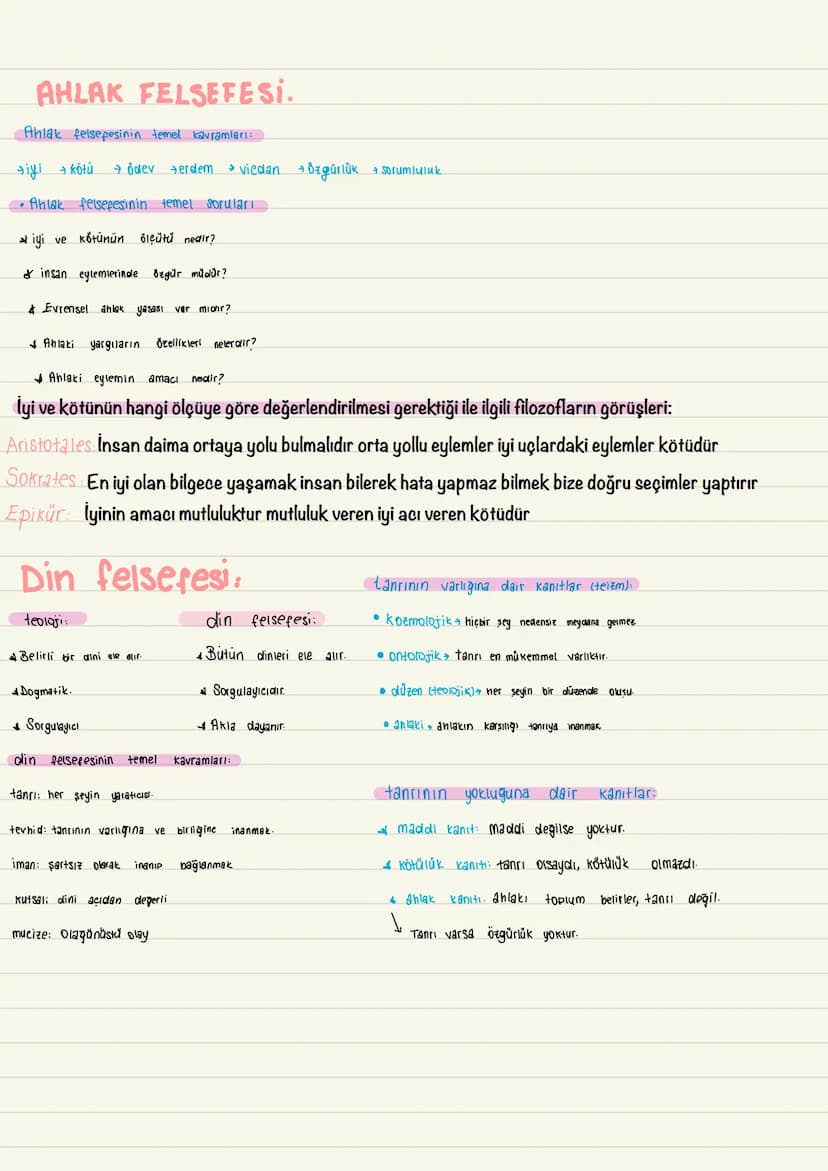 AHLAK FELSEFESİ.
Ahlak felsefesinin temel kavramları:
→iyi → kötü → ödev →erdem → vicdan → özgürlük → sorumluluk
• Ahlak felsefesinin temel soruları
iyi ve kötünün ölçütü nedir?
insan eylemlerinde özgür müdür?
Evrensel ahlak yasası var mıdır?
Ahlaki yargıların özellikleri nelerdir?
Ahlaki eylemin amacı nedir?
İyi ve kötünün hangi ölçüye göre değerlendirilmesi gerektiği ile ilgili filozofların görüşleri:
Aristotales: İnsan daima ortaya yolu bulmalıdır orta yollu eylemler iyi uçlardaki eylemler kötüdür
Sokrates: En iyi olan bilgece yaşamak insan bilerek hata yapmaz bilmek bize doğru seçimler yaptırır
Epikür: İyinin amacı mutluluktur mutluluk veren iyi acı veren kötüdür
Din felsefesi:
teoloji:
Belirli bir dini ele alır.
Dogmatik.
Sorgulayıcı
din felsefesi:
Bütün dinleri ele alır.
Sorgulayıcıdır.
Akla dayanır.
din felsefesinin temel kavramları:
tanrı: her şeyin yaratıcısı.
tevhid: tanrının varlığına ve birliğine inanmak.
iman: şartsız olarak inanıp bağlanmak
kutsal: dini açıdan değerli
mucize: Olağanüstü olay
tanrının varlığına dair kanıtlar (teizm):
• kozmolojik→ hiçbir şey nedensiz meydana gelmez
• ontolojik→ tanrı en mükemmel varlıktır.
• düzen (teolojik)→ her şeyin bir düzende oluşu.
• ahlaki→ ahlakın karşılığı tanrıya inanmak
tanrının yokluğuna dair kanıtlar:
maddi kanıt: maddi değilse yoktur.
kötülük kanıtı: tanrı olsaydı, kötülük olmazdı.
ahlak kanıtı. ahlakı toplum belirler, tanrı değil.
Tanrı varsa özgürlük yoktur.